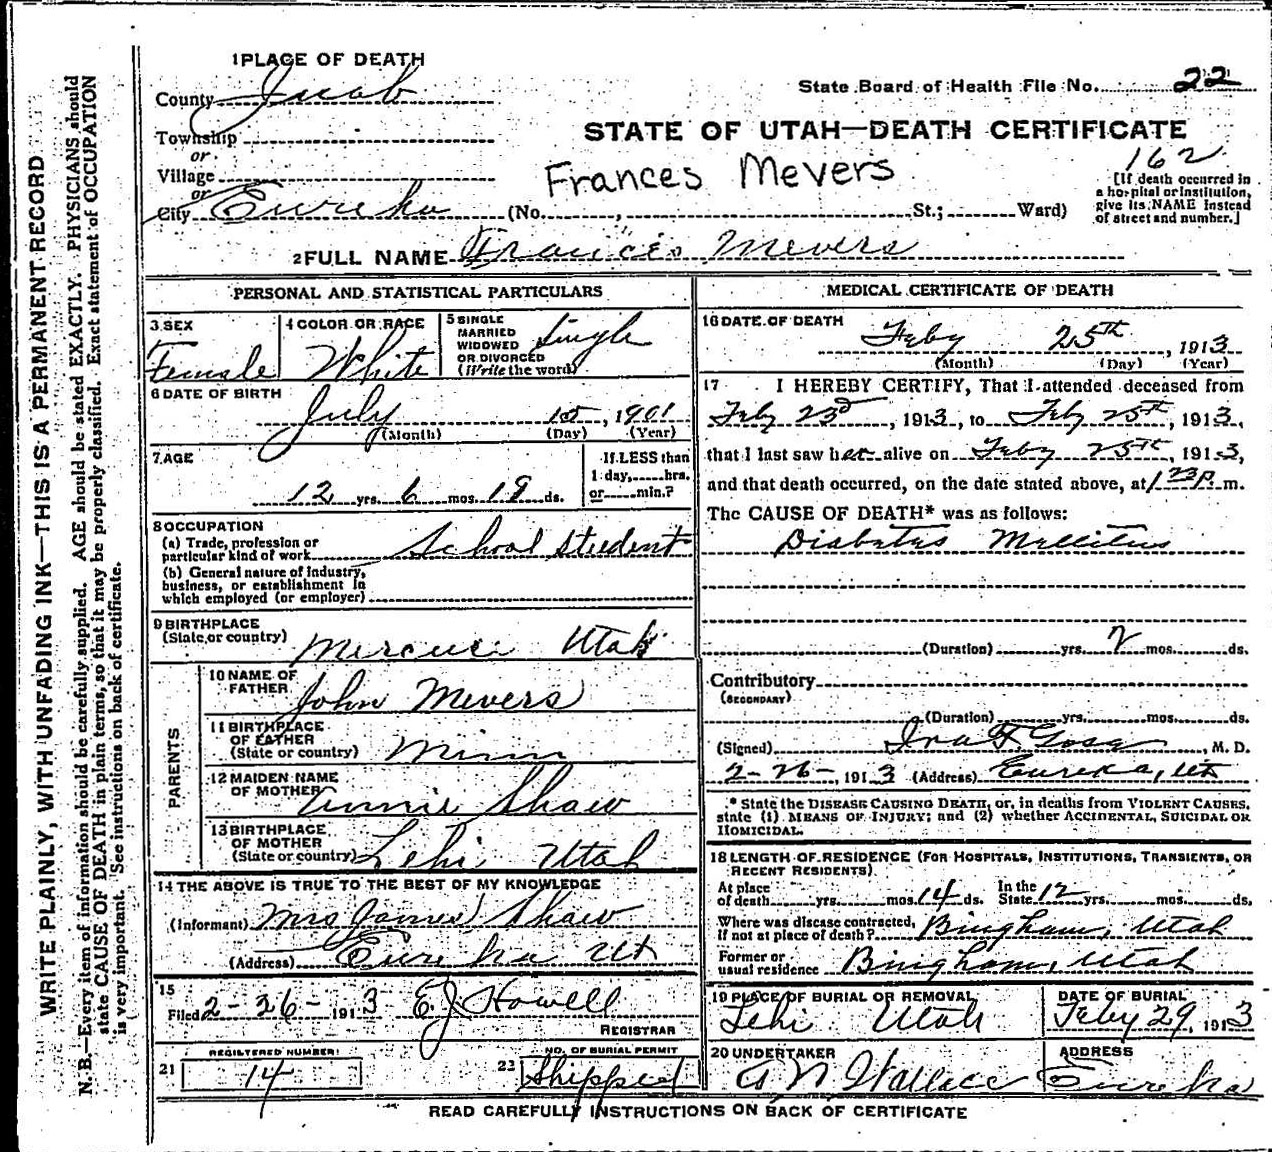 WRITE PLAINLY, WITH UNFADING INK—THIS IS A PERMANENT RECORD
N. B.—Every item of information should be carefully supplied. AGE should be stated EXACTLY. PHYSICIANS should
state CAUSE OF DEATH in plain terms, so that it may be properly classified. Exact statement of OCCUPATION
is very important. See instructions on back of certificate.
1 PLACE OF DEATH
County Juab
Township
or
Village
or
City Eureka (No. , St.; Ward)
State Board of Health File No. 22
STATE OF UTAH—DEATH CERTIFICATE
Frances Mevers
162
[If death occurred in
a hospital or institution,
give its NAME instead
of street and number.]
2 FULL NAME Frances Mevers
PERSONAL AND STATISTICAL PARTICULARS
3 SEX
Female
4 COLOR OR RACE
White
5 SINGLE
MARRIED
WIDOWED
OR DIVORCED
(Write the word)
Single
6 DATE OF BIRTH
July 10, 1901
(Month) (Day) (Year)
7 AGE
12 yrs. 6 mos. 18 ds.
If LESS than
1 day, hrs.
or min.?
8 OCCUPATION
(a) Trade, profession or
particular kind of work School Student
(b) General nature of industry,
business, or establishment in
which employed (or employer)
9 BIRTHPLACE
(State or country) Mercur Utah
PARENTS
10 NAME OF
FATHER John Mevers
11 BIRTHPLACE
OF FATHER
(State or country) Minn
12 MAIDEN NAME
OF MOTHER Annie Shaw
13 BIRTHPLACE
OF MOTHER
(State or country) Lehi Utah
14 THE ABOVE IS TRUE TO THE BEST OF MY KNOWLEDGE
(Informant) Mrs James Shaw
(Address) Eureka Ut
15
Filed 2-26- 1913 E J Howell
REGISTRAR
21 REGISTERED NUMBER
14
22 NO. OF BURIAL PERMIT
Shipped
MEDICAL CERTIFICATE OF DEATH
16 DATE OF DEATH
Feby 25th, 1913
(Month) (Day) (Year)
17 I HEREBY CERTIFY, That I attended deceased from
Feby 23d, 1913, to Feby 25th, 1913,
that I last saw her alive on Feby 25th, 1913,
and that death occurred, on the date stated above, at 1 23 P. m.
The CAUSE OF DEATH* was as follows:
Diabetus Mellitus
(Duration) yrs. 2 mos. ds.
Contributory
(SECONDARY)
(Duration) yrs. mos. ds.
(Signed) Ira F. , M. D.
2-26- 1913 (Address) Eureka, Ut
* State the DISEASE CAUSING DEATH, or, in deaths from VIOLENT CAUSES,
state (1) MEANS OF INJURY; and (2) whether ACCIDENTAL, SUICIDAL OR
HOMICIDAL.
18 LENGTH OF RESIDENCE (FOR HOSPITALS, INSTITUTIONS, TRANSIENTS, OR
RECENT RESIDENTS)
At place
of death yrs. mos. 14 ds. In the
State 12 yrs. mos. ds.
Where was disease contracted,
If not at place of death? Bingham, Utah
Former or
usual residence Bingham, Utah
19 PLACE OF BURIAL OR REMOVAL
Lehi Utah
DATE OF BURIAL
Feby 29, 1913
20 UNDERTAKER
A N Wallace
ADDRESS
Eureka
READ CAREFULLY INSTRUCTIONS ON BACK OF CERTIFICATE